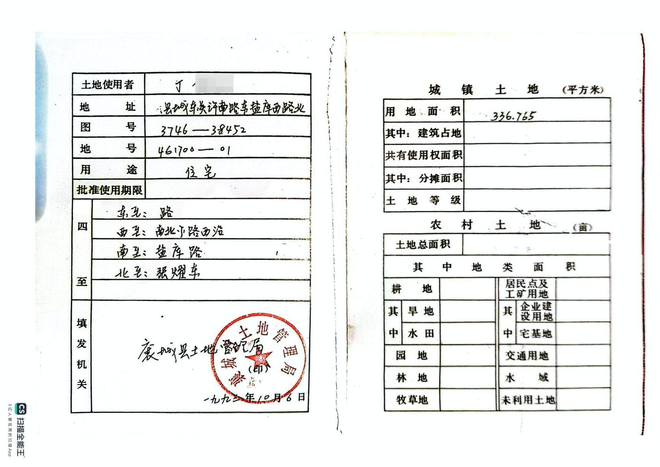 土地使用者 丁
地址 县城东关许南路东盐库西路北
图号 3746—38452
地号 461700—01
用途 住宅
批准使用期限
四至
东至：路
西至：南北小路西沿
南至：盐库路
北至：张耀东
填发机关
襄城县土地管理局
(印)
襄城县土地管理局
一九九三年10月6日
城镇土地 (平方米)
用地面积 336.765
其中：建筑占地
共有使用权面积
其中：分摊面积
土地等级
农村土地 (亩)
土地总面积
其中地类面积
耕地 居民点及工矿用地
其中 旱地 其中 企业建设用地
水田 宅基地
园地 交通用地
林地 水域
牧草地 未利用土地
CS 扫描全能王
3亿人都在用的扫描App